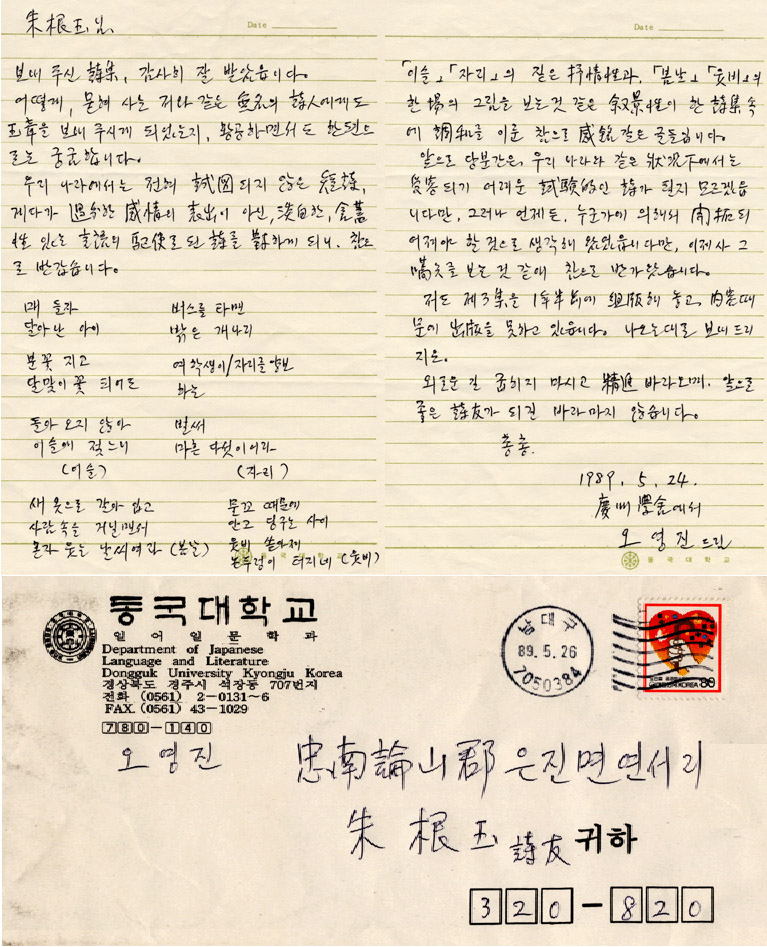 朱根玉님
Date
보내 주신 詩集, 감사히 잘 받았읍니다.
어떻게, 묻혀 사는 저와 같은 無名의 詩人에게도
玉章을 보내 주시게 되었는지, 황공하면서도 한편으
로는 궁금합니다.
우리 나라에서는 전혀 試図되지 않은 短詩,
게다가 過分한 感情의 表出이 아닌, 淡白한, 含蓄
性 있는 言語의 駆使로 된 詩를 対하게 되니, 참으
로 반갑습니다.
매 들자
달아난 아이
분꽃 지고
달맞이꽃 되어도
돌아 오지 않아
이슬에 젖느니
(이슬)
버스를 타면
밝은 개나리
여학생이/자리를 양보
하는
벌써
마흔 다섯이어라
(자리)
새 옷으로 갈아 입고
사람 속을 거닐면서
혼자 웃는 날씨여라 (봄날)
물꼬 때문에
안고 뒹구는 사이
윳비 쏟아져
논두렁이 터지네 (윳비)
동국대학교
Date
「이슬」「자리」의 짙은 抒情性과, 「봄날」「윳비」의
한 場의 그림을 보는 것 같은 叙景性이 한 詩集 속
에 調和를 이룬 참으로 感銘 같은 글들입니다.
앞으로 당분간은, 우리 나라와 같은 状況下에서는
受容되기 어려운 試験的인 詩가 될지 모르겠읍
니다만, 그러나 언제든, 누군가에 의해서 開拓되
어져야 할 것으로 생각해 왔었읍니다만, 이제사 그
嚆矢를 보는 것 같애 참으로 반가왔습니다.
저도 제3集을 1年半 前에 組版해 놓고, 内容 때
문에 出版을 못하고 있읍니다. 나오는대로 보내 드리
지요.
외로운 길 굽히지 마시고 精進 바라오며. 앞으로
좋은 詩友가 되길 바라마지 않습니다.
총총.
1989. 5. 24.
慶州 學舍에서
오영진 드림
동국대학교
동국대학교
일어일문학과
Department of Japanese
Language and Literature
Dongguk University Kyongju Korea
경상북도 경주시 석장동 707번지
전화 (0561) 2-0131~6
FAX. (0561) 43-1029
780-140
오영진
남대구
89.5.26
7050384
KOREA 80
忠南論山郡 은진면 연서리
朱根玉 詩友 귀하
320-820